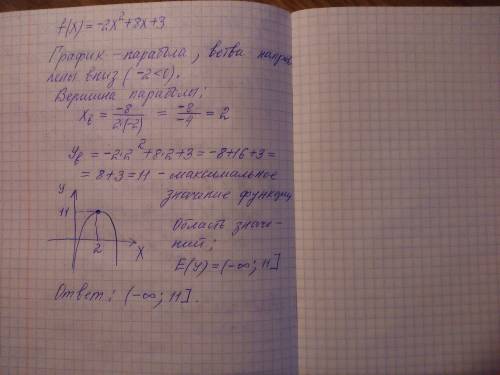 f(x) = -2x² + 8x + 3
График - парабола, ветви направ
лены вниз (-2<0).
Вершина параболы;
xв = -8/2·(-2) = -8/-4 = 2
yв = -2·2² + 8·2 + 3 = -8+16+3 =
= 8+3 = 11 - максимальное
значение функции
y
11
2
x
Область значе-
ний;
E(y) = (-∞; 11]
Ответ; (-∞; 11].